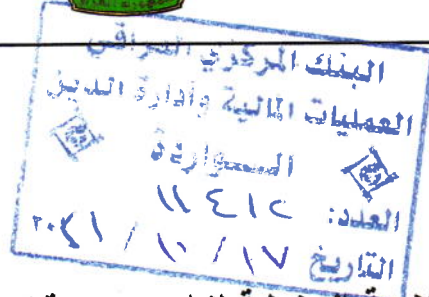 البنك المركزي العراقي
العمليات المالية وأدارة الدين
الـــواردة
العدد: ١١٤١٢
التاريخ ١٧ / ١٠ / ٢٠٢١